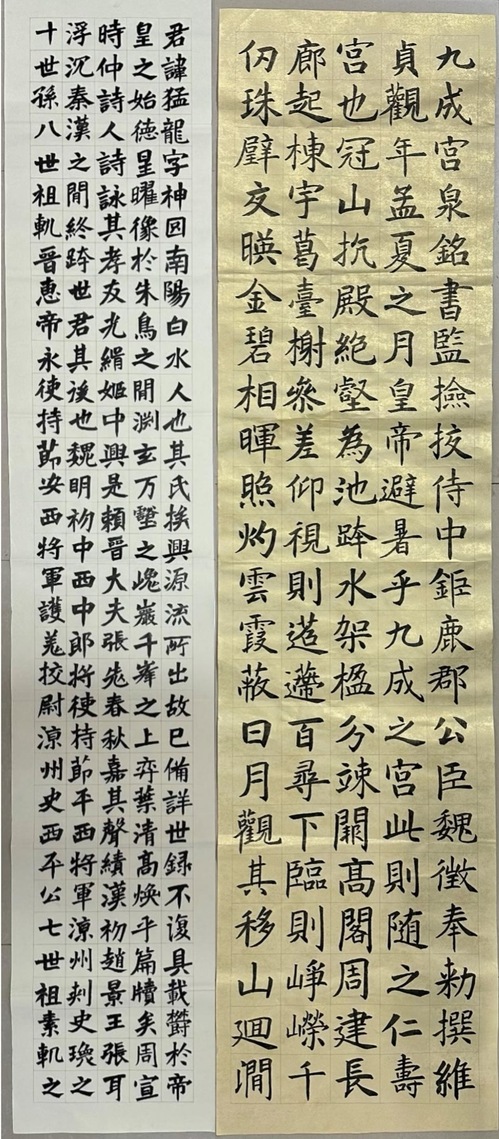 九成宫泉銘書監撿挍侍中鉅鹿郡公臣魏徵奉勑撰維
貞觀年孟夏之月皇帝避暑乎九成之宫此則随之仁壽
宫也冠山抗殿絶壑為池跨水架楹分竦闕高閣周建長
廊起棟宇葛臺榭叅差仰視則迢遰百尋下臨則崢嶸千
仞珠璧交暎金碧相暉照灼雲霞蔽日月觀其移山廻澗
君諱猛龍字神囙南陽白水人也其氏族興源流所出故已備詳世録不復具載欝於帝
皇之始德星曜像於朱鳥之間渊玄万壑之峗巖千峯之上弈葉清高煥乎篇牘矣周宣
時仲詩人詩詠其孝友光緝姬中興是賴晉大夫張老春秋嘉其聲績漢初趙景王張耳
浮沉秦漢之間終跨世君其後也魏明初中西中郎将使持節平西将軍涼州刾史瓊之
十世孫八世祖軌晉惠帝永使持節安西将軍護羗挍尉涼州史西平公七世祖素軌之